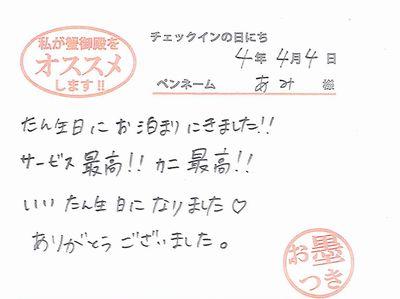 私が蟹御殿を
オススメ
します!!
チェックインの日にち
4年 4月 4日
ペンネーム あみ 様
たん生日に お泊まりにきました!!
サービス 最高!! カニ 最高!!
いい たん生日に なりました♡
ありがとう ございました。
お墨
つき